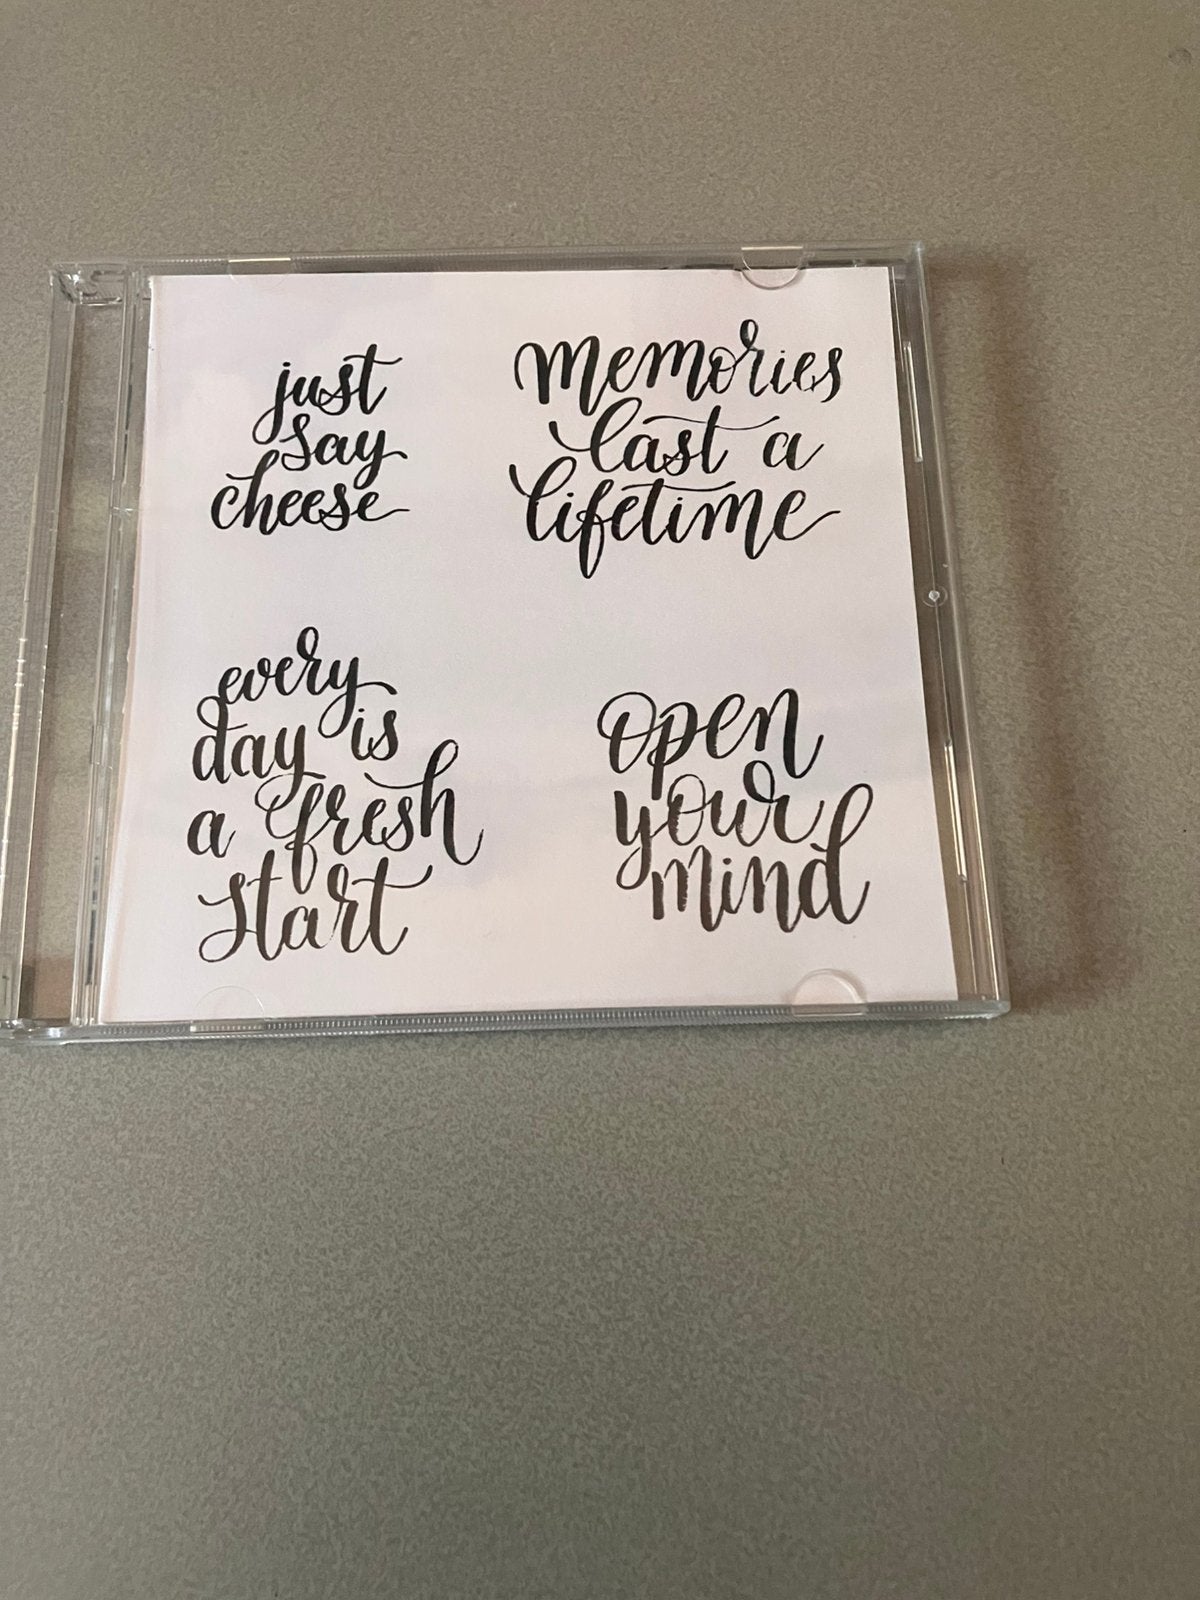 just
say
cheese
memories
last a
lifetime
every
day is
a fresh
start
open
your
mind